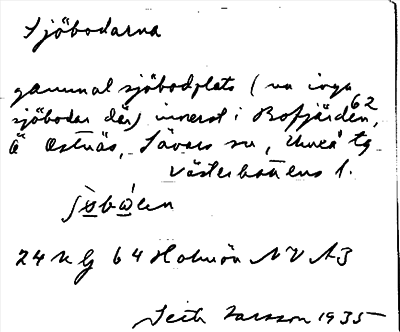 Sjöbodarna
gammal sjöbodplats (nu inga
sjöbodar där) innerst i Bofjärden, 62
Å Östnäs, Sävars sn, Umeå tg
Västerbottens l.
24 64 Holmön NV A3
Larsson 1935